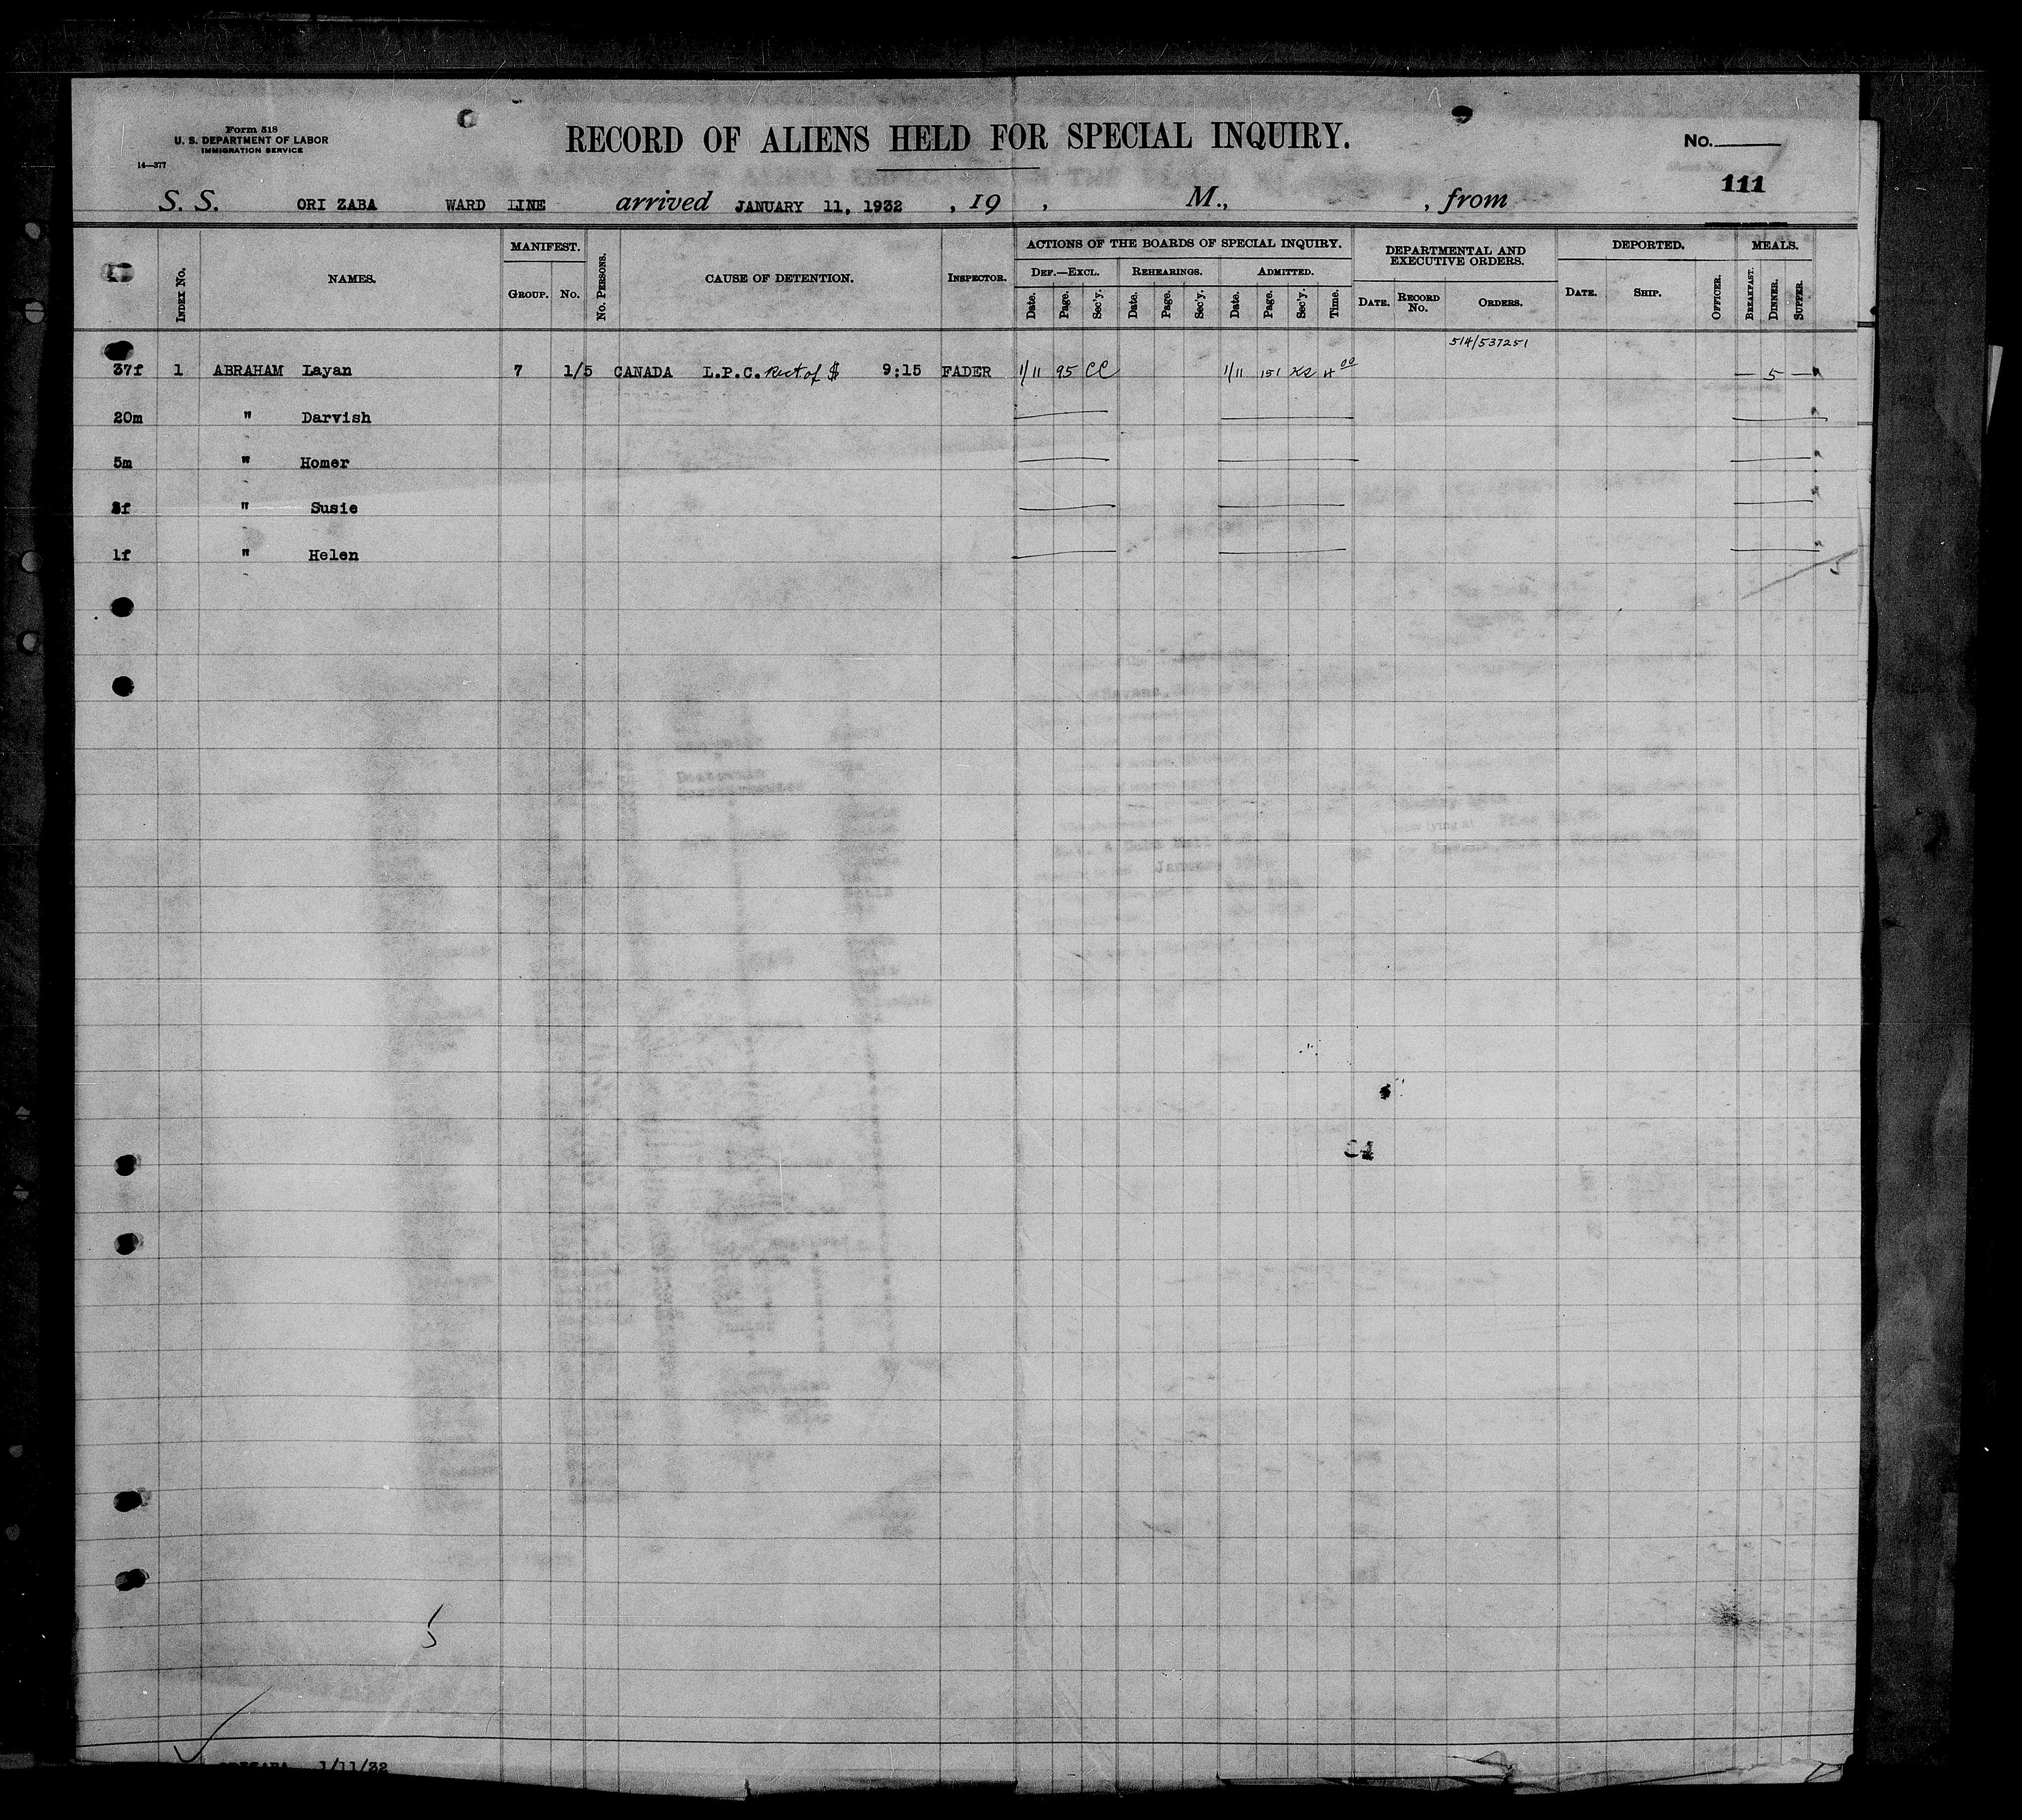 Form 518
U. S. DEPARTMENT OF LABOR
IMMIGRATION SERVICE
14—377
RECORD OF ALIENS HELD FOR SPECIAL INQUIRY.
No.
111
S. S. ORI ZABA WARD LINE arrived JANUARY 11, 1932 , 19 , M., , from
INDEX No.
NAMES.
MANIFEST.
GROUP. No.
No. PERSONS.
CAUSE OF DETENTION.
INSPECTOR.
ACTIONS OF THE BOARDS OF SPECIAL INQUIRY.
DEF.—EXCL. REHEARINGS. ADMITTED.
Date. Page. Sec'y. Date. Page. Sec'y. Date. Page. Sec'y. Time.
DEPARTMENTAL AND
EXECUTIVE ORDERS.
DATE. RECORD No. ORDERS.
DEPORTED.
DATE. SHIP. OFFICER.
MEALS.
BREAKFAST. DINNER. SUPPER.
514/537251
37f 1 ABRAHAM Layan 7 1/5 CANADA L.P.C. Rect of $ 9:15 FADER 1/11 95 CC 1/11 151 KS 4 00 — 5 —
20m " Darvish
5m " Homer
f " Susie
1f " Helen
5
5
1/11/32